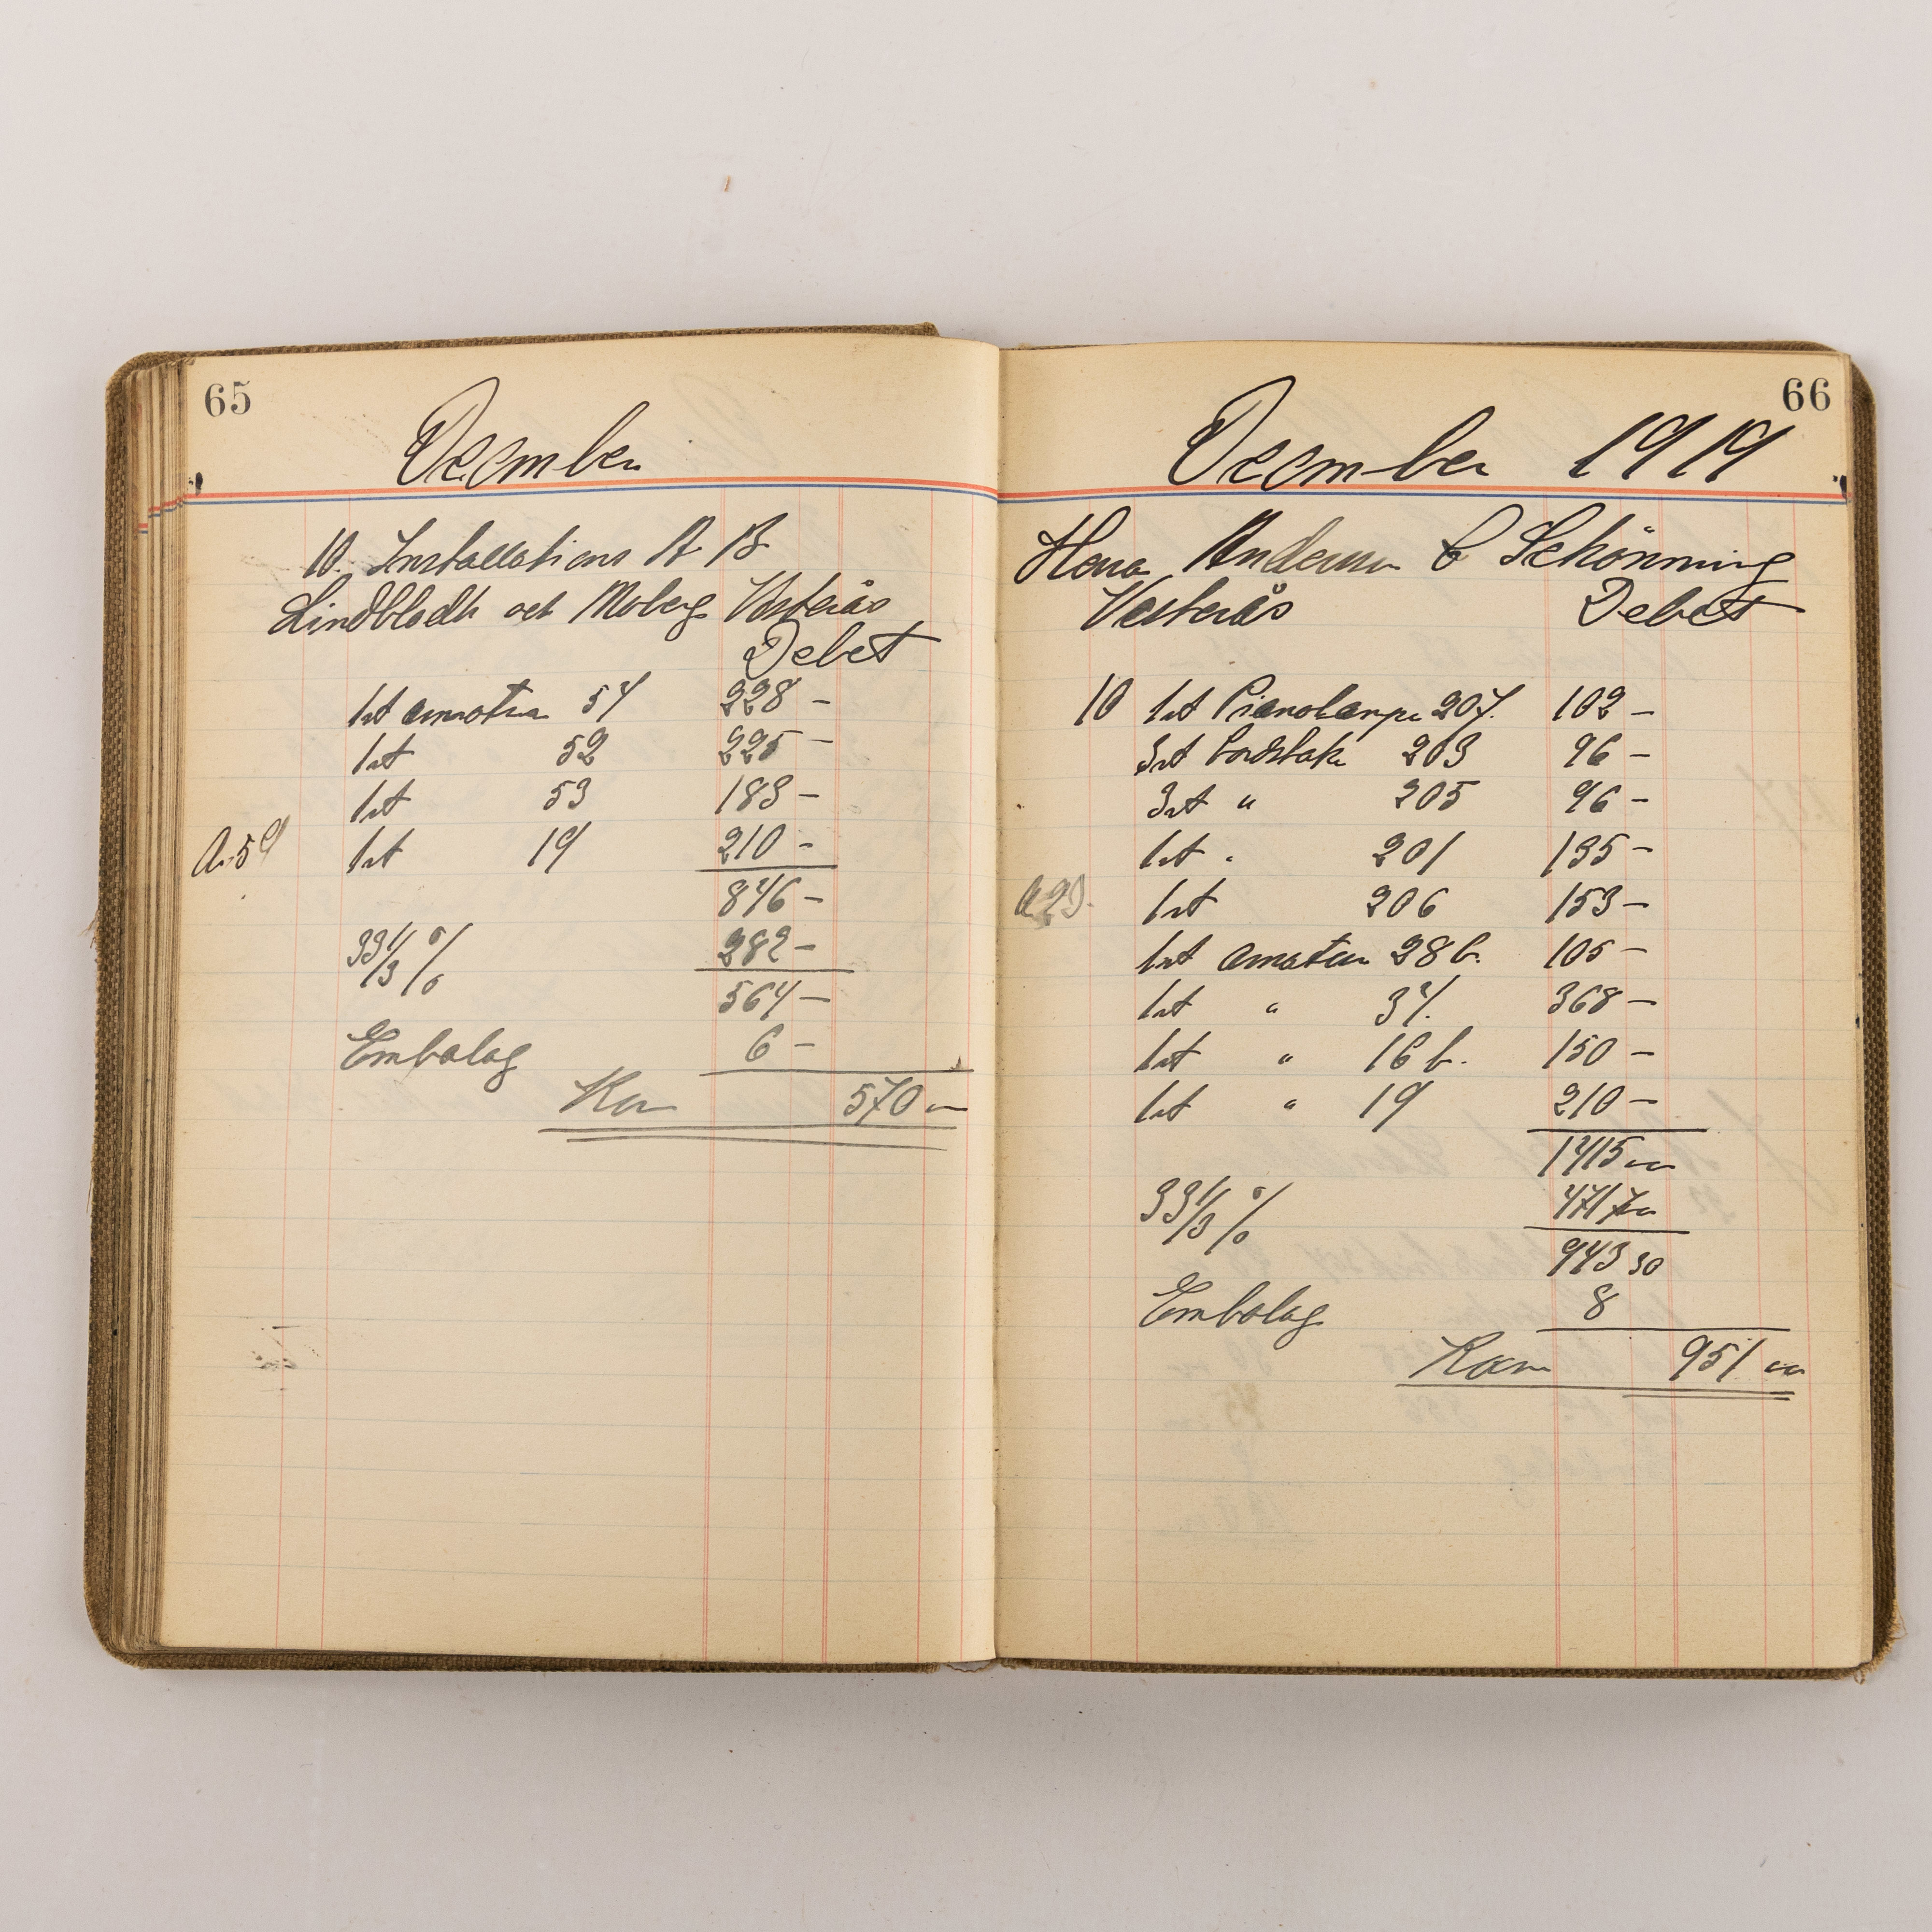 65
December
10. Installations A B
Lindblodh och Moberg Västerås
Debet
1 st armatur 54 228 –
1 st 52 225 –
1 st 53 183 –
A. 59 1 st 19 210 –
846 –
33 1/3 % 282 –
564 –
Embalag 6 –
Kr 570 –
66
December 1919
Herrar Andersson & Schönning
Västerås Debet
10 1 st Pianolampa 207. 102 –
3 st bordstake 203 96 –
3 st " 205 96 –
1 st " 201 135 –
A 23. 1 st 206 153 –
1 st armatur 28 b. 105 –
1 st " 34. 368 –
1 st " 16 b. 150 –
1 st " 19 210 –
1415 –
33 1/3 % 471 70
943 30
Embalag 8
Kr 951 –